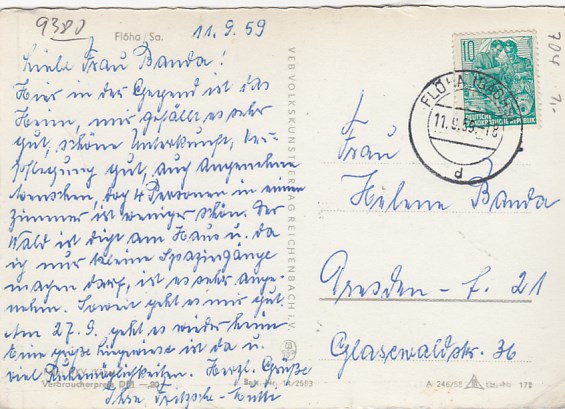 9380
Flöha/Sa.
11.9.59
Liebe Frau Banda!
Hier in der Gegend ist das
Heim, mir gefällt es sehr
gut, schöne Unterkunft, Ver-
pflegung gut, auch angenehme
Menschen, daß 4 Personen in einem
Zimmer ist weniger schön. Der
Wald ist digt am Haus u. da
ich nur kleine Spaziergänge
machen darf, ist es sehr ange-
nehm. Soweit geht es mir gut.
Am 27.9. geht es wieder heim
Eine große Liegewiese ist da u.
viel Ruhemöglichkeiten. Herzl. Grüße
Ihre
Verbraucherpreis DM -,20
VEB VOLKSKUNSTVERLAG REICHENBACH I. V.
10
DEUTSCHE
DEMOKRATISCHE REPUBLIK
FLÖHA
11.9.59.-18
d
704
Frau
Helene Banda
Dresden - A. 21
Glasewaldtstr. 36